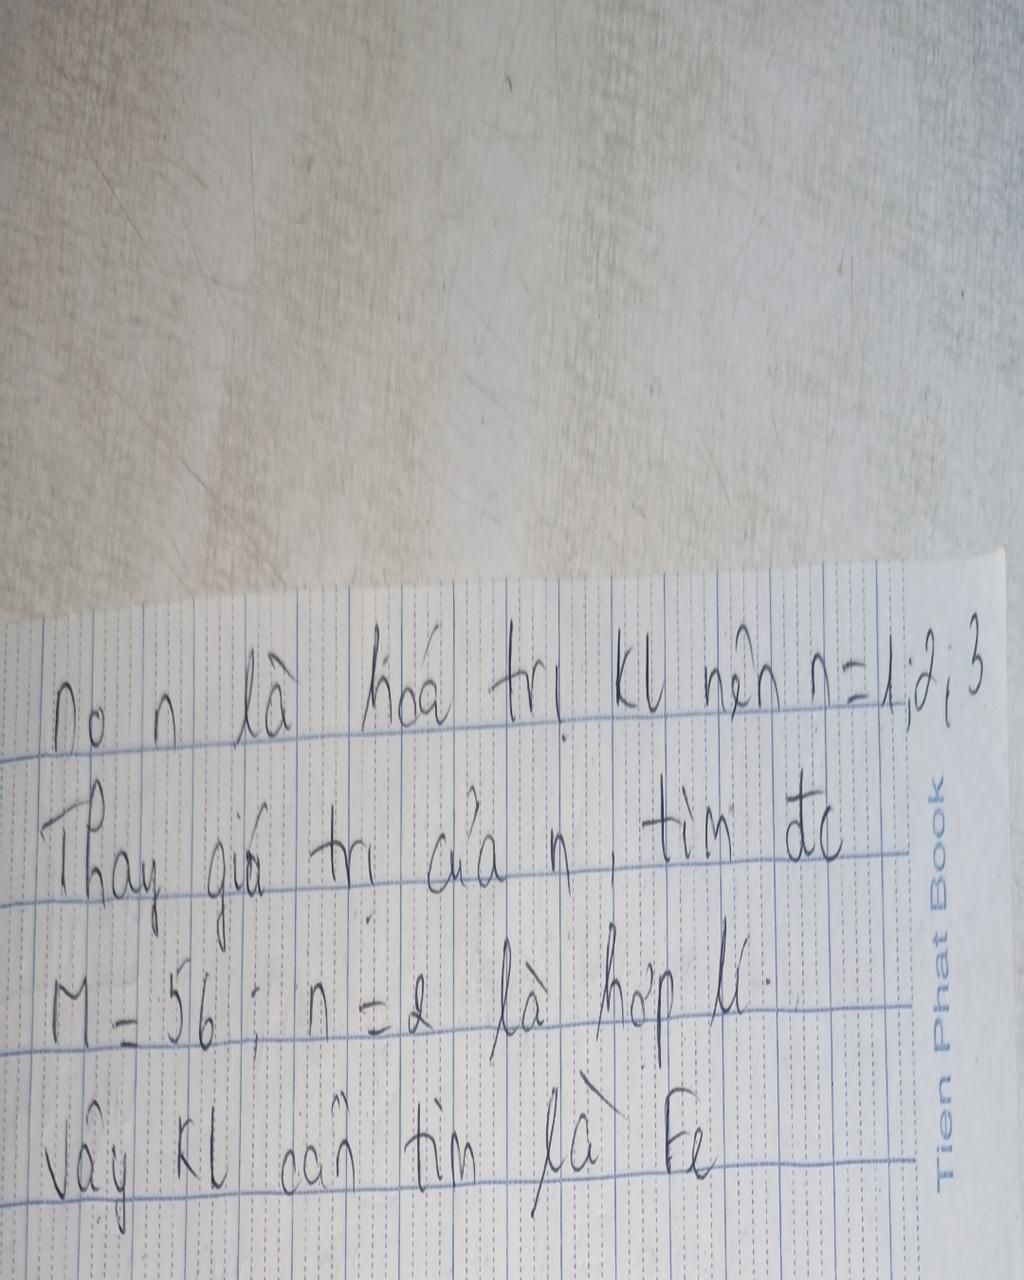 Do n là hoá trị Kl nên n=1;2;3
Thay giá trị của n, tìm đc
M = 56; n = 2 là hợp lí.
Vậy Kl cần tìm là Fe
Tien Phat Book